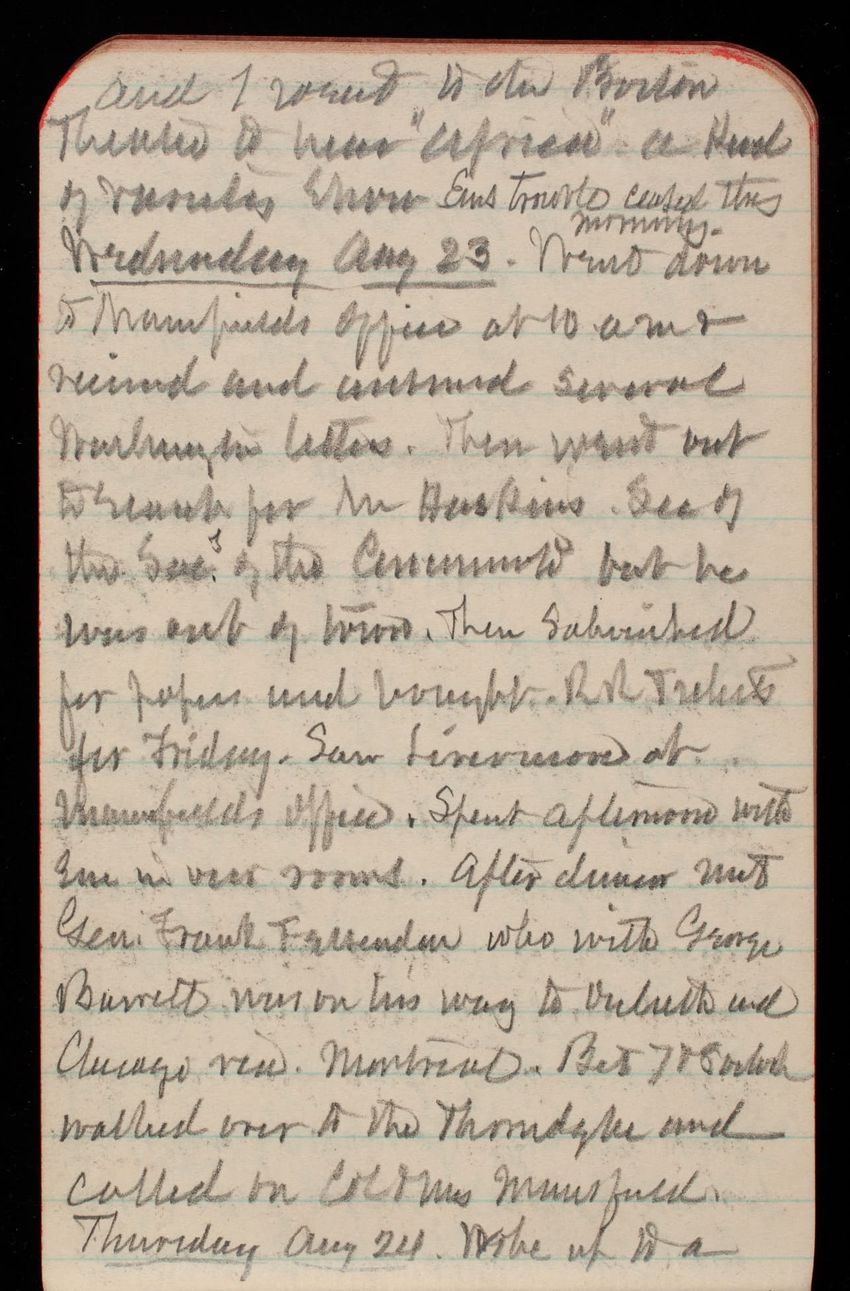 and I went to the Boston
Theatre to hear "Africa" a kind
of variety Show Ems trouble ceased this
morning.
Wednesday Aug 23. Went down
to Mansfields Office at 10 a m &
received and answered several
Washington letters. Then went out
to search for Mr Haskins. Secy of
the Soc. of the Cincinnati but he
was out of town. Then
for papers and bought R R Tickets
for Friday. Saw Livermore at
Mansfields Office. Spent afternoon with
Em in our rooms. After dinner met
Gen. Frank Fessenden who with George
Barrett was on his way to Duluth and
Chicago via. Montreal. Bet 7 & 8 oclock
walked over to the Thorndyke and
called on Col & Mrs Mansfield.
Thursday Aug 24. Woke up to a